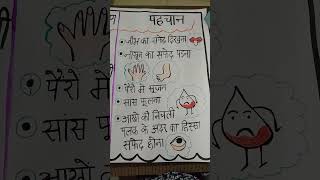 पहचान
जीभ का सफेद दिखना
नाखून का सफेद पड़ना
पैरों मे सूजन
सांस फूलना
आखों की निचली
पलक के अंदर का हिस्सा
सफेद होना